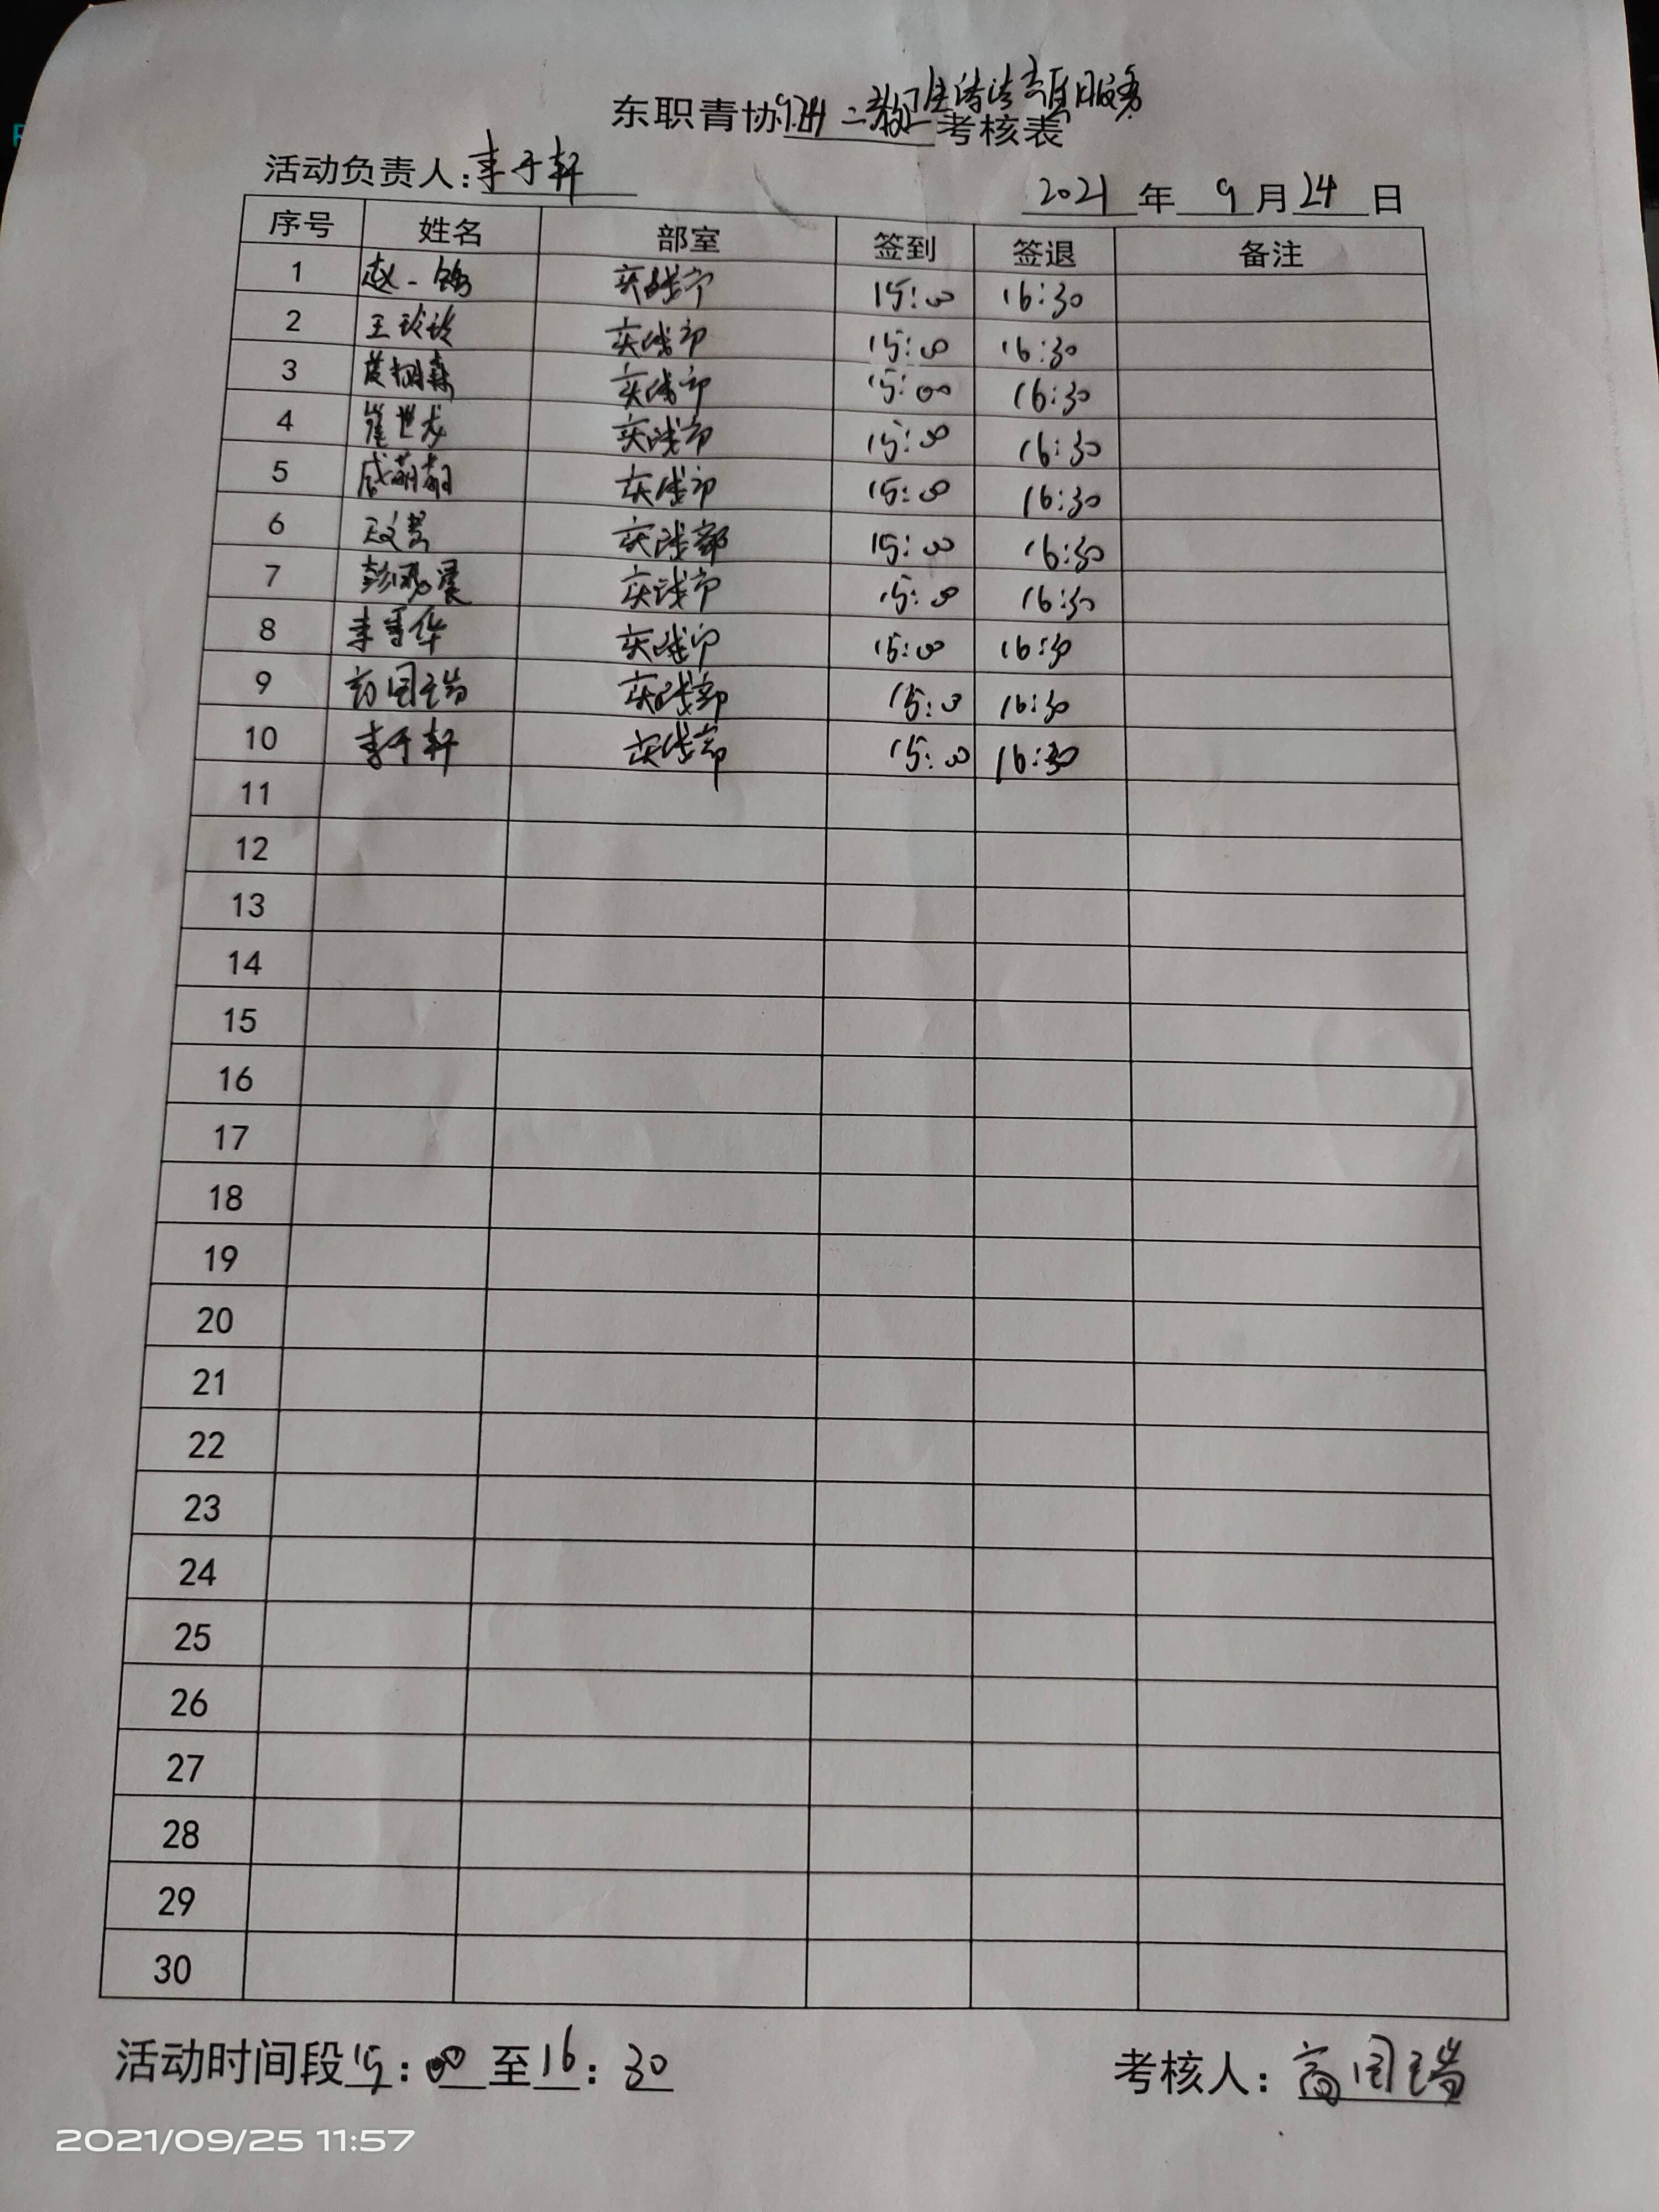 东职青协9.24二教卫生清洁志愿服务考核表
活动负责人：李于轩
2021年9月24日
序号 姓名 部室 签到 签退 备注
1 赵一 实践部 15:00 16:30
2 王玲玲 实践部 15:00 16:30
3 实践部 15:00 16:30
4 崔世龙 实践部 15:00 16:30
5 实践部 15:00 16:30
6 实践部 15:00 16:30
7 实践部 15:00 16:30
8 李 华 实践部 15:00 16:30
9 高国瑞 实践部 15:00 16:30
10 李于轩 实践部 15:00 16:30
11
12
13
14
15
16
17
18
19
20
21
22
23
24
25
26
27
28
29
30
活动时间段15:00至16:30
考核人：高国瑞
2021/09/25 11:57